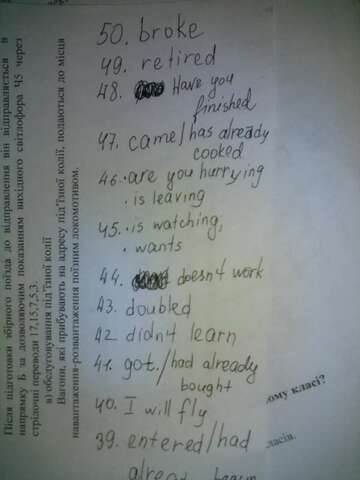 50. broke
49. retired
48. Have you
finished
47. came/has already
cooked
46. are you hurrying
. is leaving
45. is watching,
. wants
44. doesn't work
43. doubled
42 didn't learn
41. got./had already
bought
40. I will fly
39. entered/had
Після підготовки збірного поїзда до відправлення він відправляється в
напрямку Б за дозволяючим показанням вихідного світлофора Ч5 через
стрілочні переводи 17,15,7,5,3.
в) обслуговування під'їзної колії
Вагони, які прибувають на адресу під'їзної колії, подаються до місця
навантаження-розвантаження поїзним локомотивом.
ому класі?
ласів.